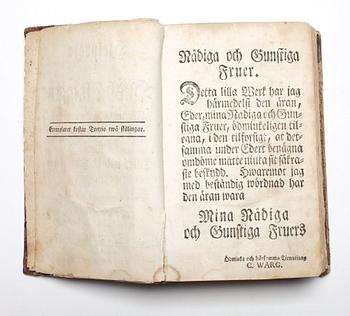 Exemplaret kostar Trettio twå skillingar.
Nådiga och Gunstiga
Fruer.
Detta lilla Werk har jag
härmedelst den äran,
Eder, mina Nådiga och Gun-
stiga Fruer, ödmjukeligen til-
egna, i den tilförsigt, at det-
samma under Edert benägna
omdöme måtte niuta sit säkra-
ste beskydd. Hwaremot jag
med beständig wördnad har
den äran wara
Mina Nådiga
och Gunstiga Fruers
Ödmiuka och hörsamma Tienarinna
C. WARG.